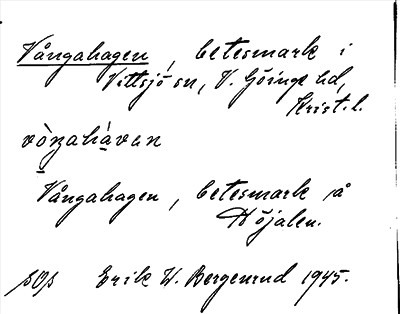 Vångahagen, betesmark i
Vittsjö sn, V. Göinge hd,
Krist. l.
vòŋahàvan
Vångahagen, betesmark på
Höjalen.
sOs Erik W. Bergenrud 1945.